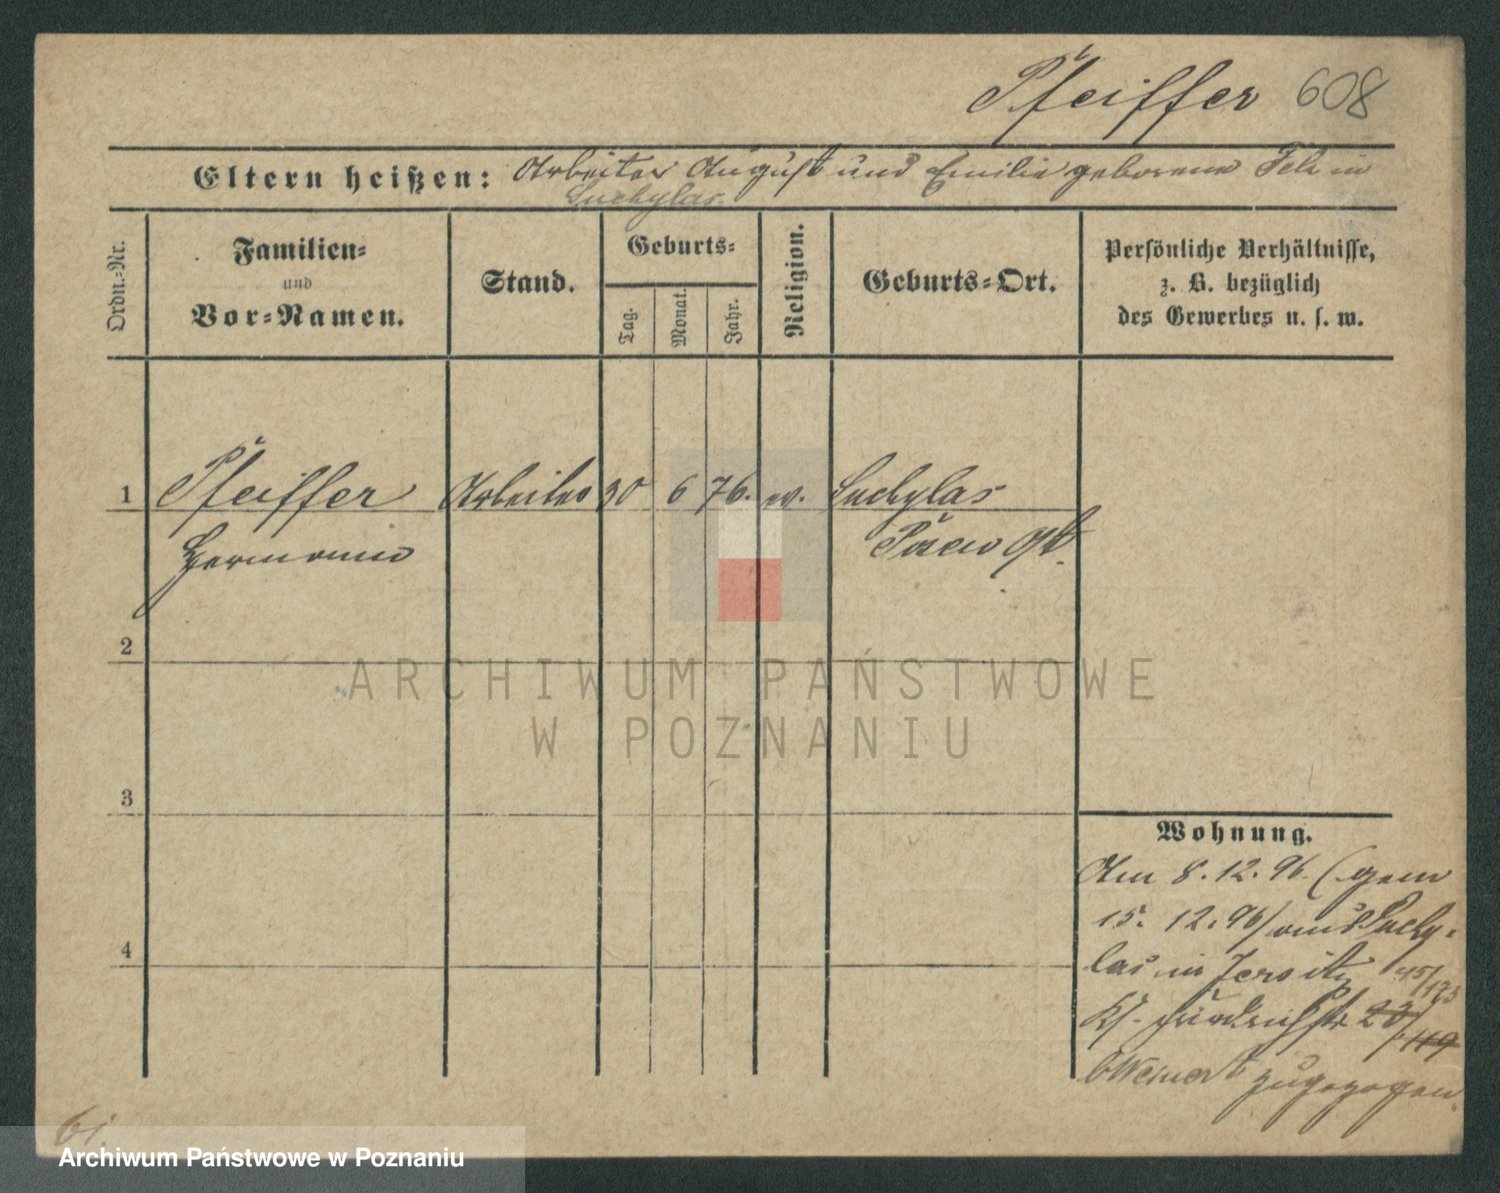 Pfeiffer 608
Eltern heißen: Arbeiter August und Emilie geborene in
Luchylas.
Ordn.-Nr.
Familien-
und
Vor-Namen.
Stand.
Geburts-
Tag.
Monat.
Jahr.
Religion.
Geburts-Ort.
Persönliche Verhältnisse,
z. B. bezüglich
des Gewerbes u. s. w.
1 Pfeiffer Arbeiter 30 6 76. ev. Luchylas
Hermann
2
3
4
Wohnung.
Am 8.12.96. (gem
15. 12.96) aus Luchy-
las in Jersitz 45/173
Kf. Friedrichstr 23/119
b/Weinert zugezogen.
ARCHIWUM PAŃSTWOWE
W POZNANIU
Archiwum Państwowe w Poznaniu